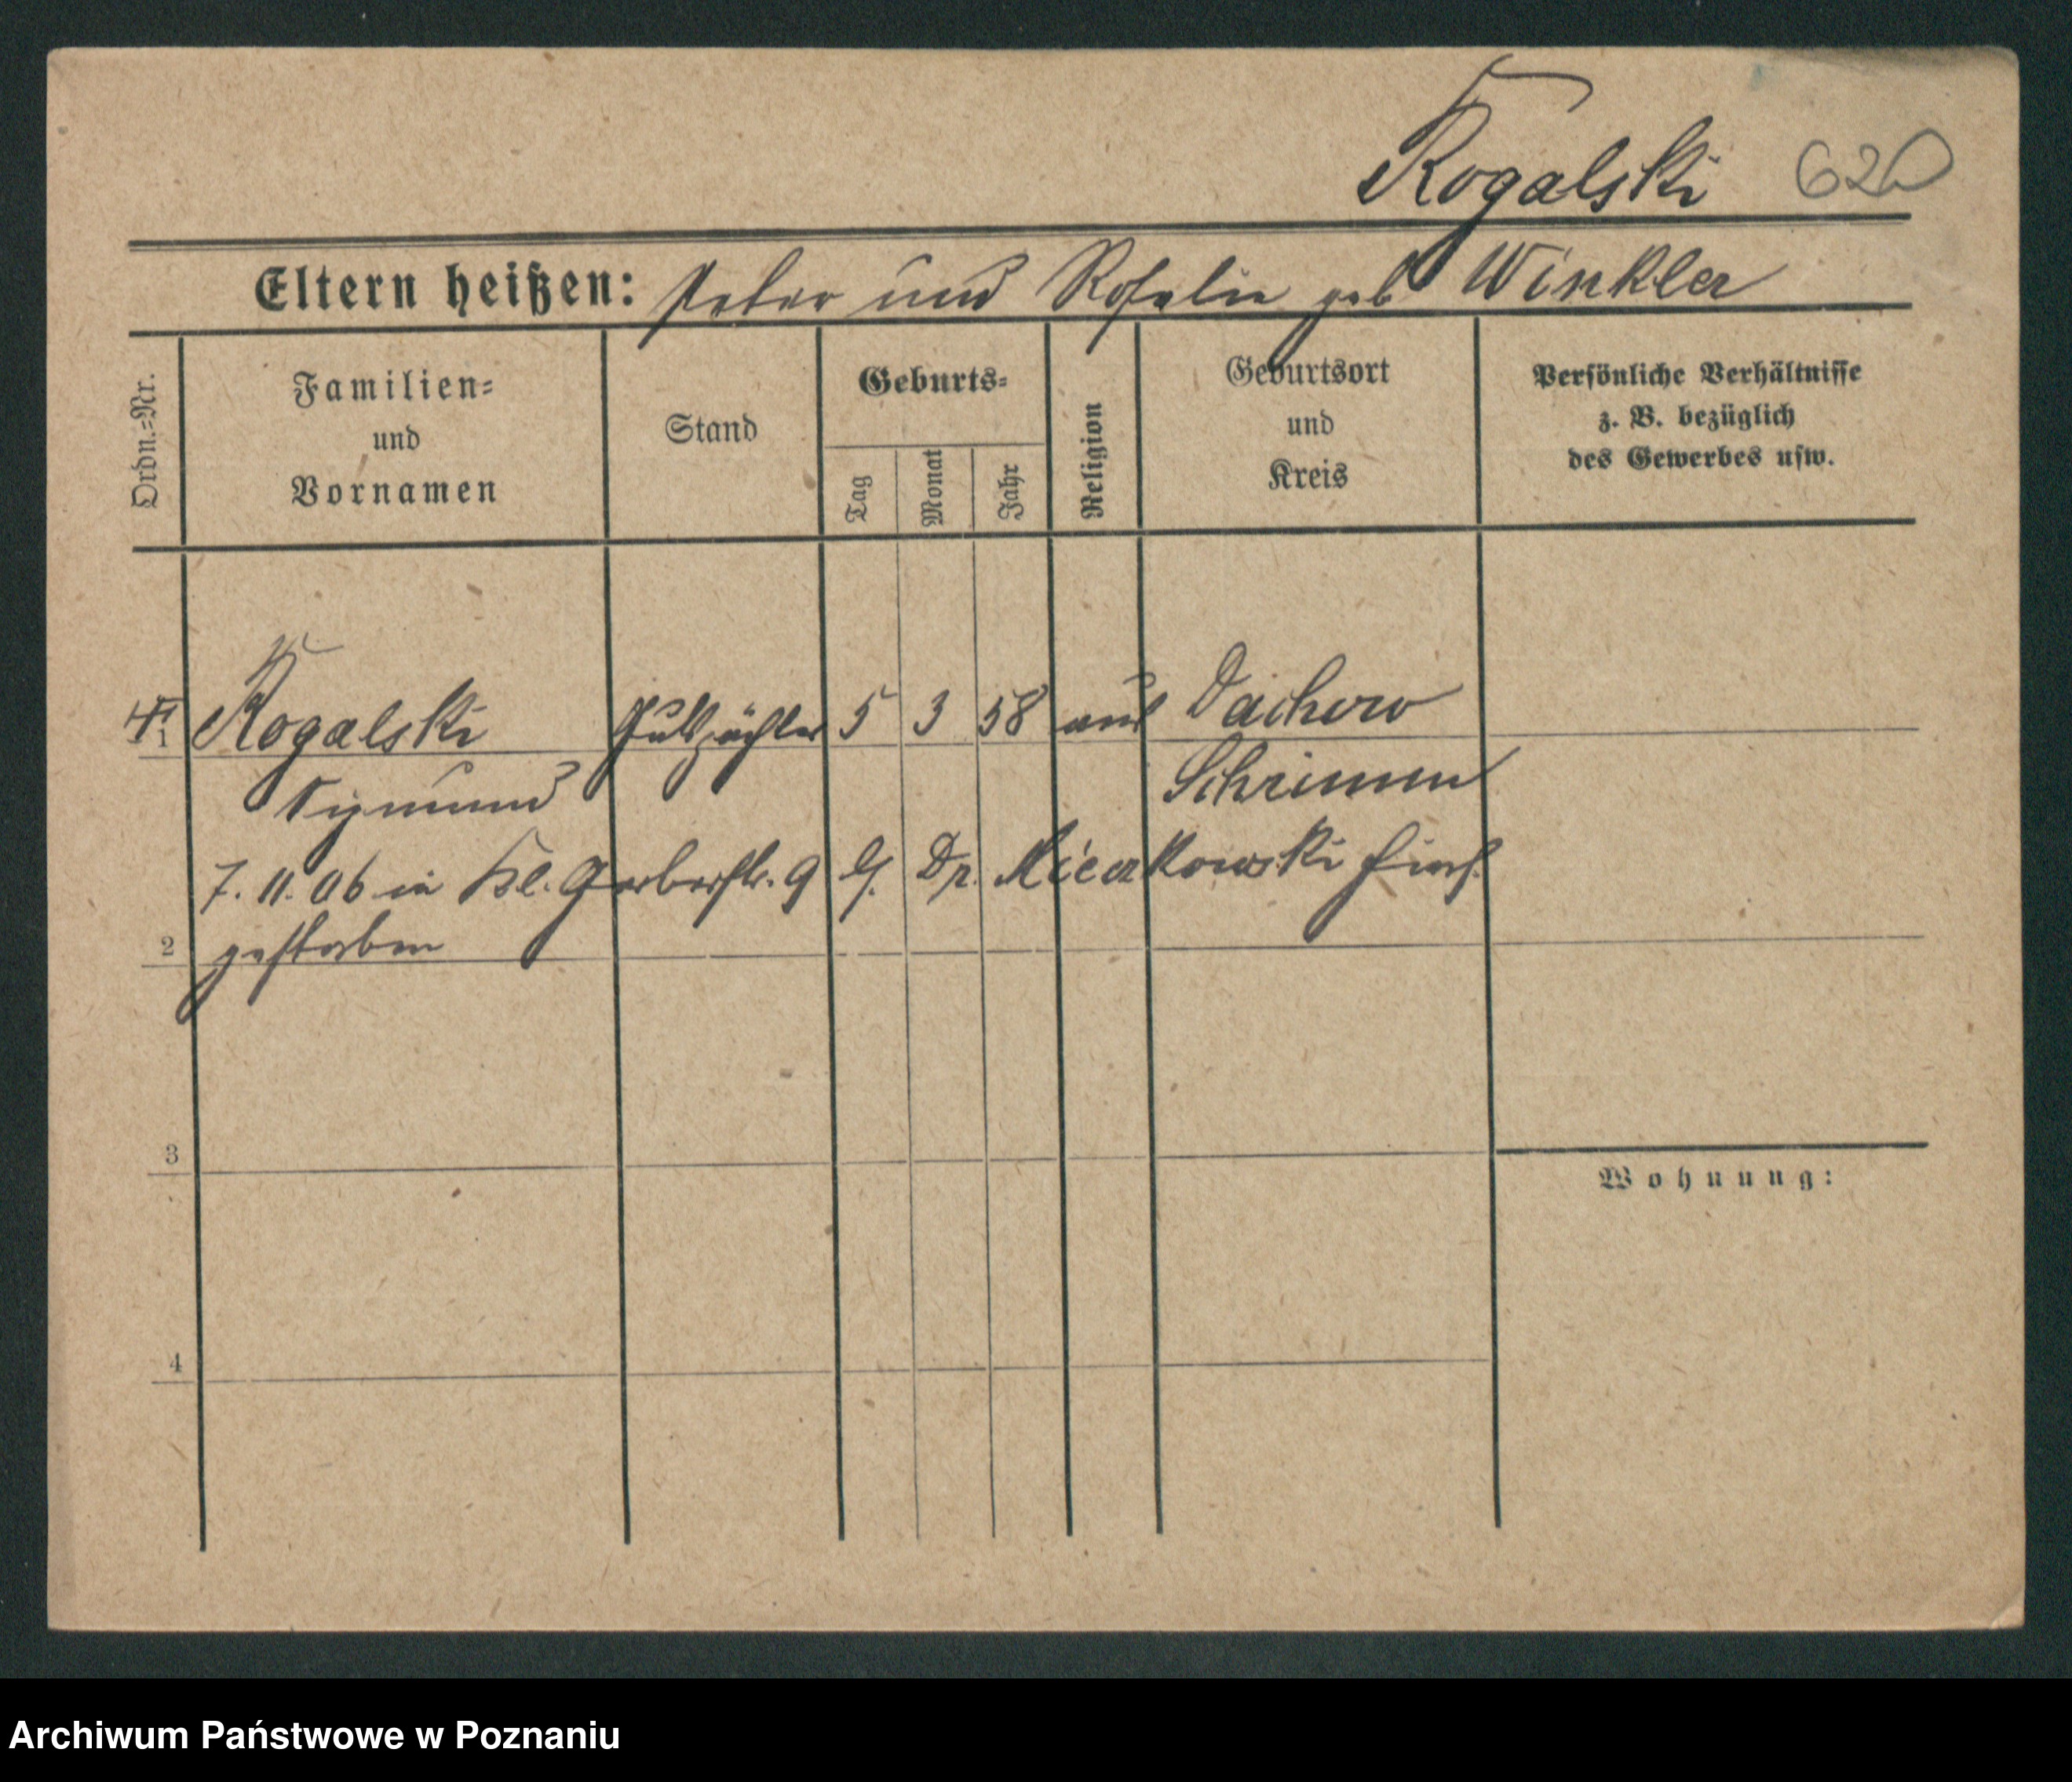 Rogalski
Eltern heißen: Peter und Rosalie geb Winkler
Ordn.-Nr.
Familien-
und
Vornamen
Stand
Geburts-
Tag
Monat
Jahr
Religion
Geburtsort
und
Kreis
Persönliche Verhältnisse
z. B. bezüglich
des Gewerbes usw.
1 Rogalski Gutspächter 5 3 58 aus Dachowo
Sigmund Schrimm
7. 11. 06 in Kl. Gerberstr. 9 b. Dr. Mieczkowski hier
2 gestorben
3
Wohnung:
4
Archiwum Państwowe w Poznaniu